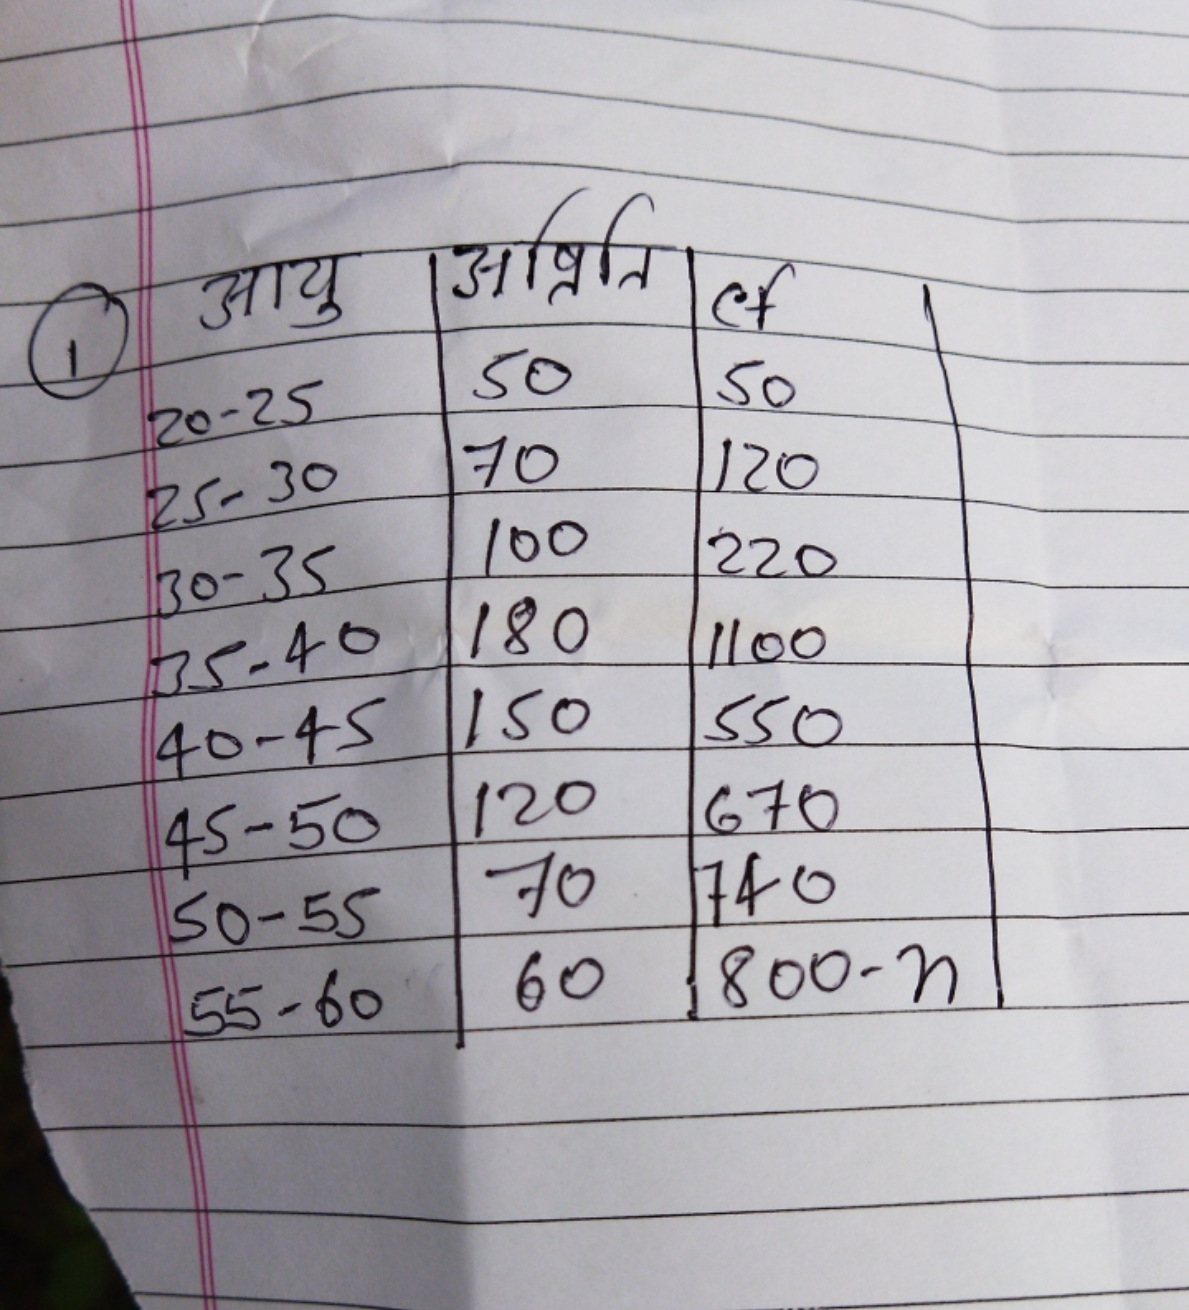 ① आयु cf
20-25 50 50
25-30 70 120
30-35 100 220
35-40 180 1100
40-45 150 550
45-50 120 670
50-55 70 740
55-60 60 800-n